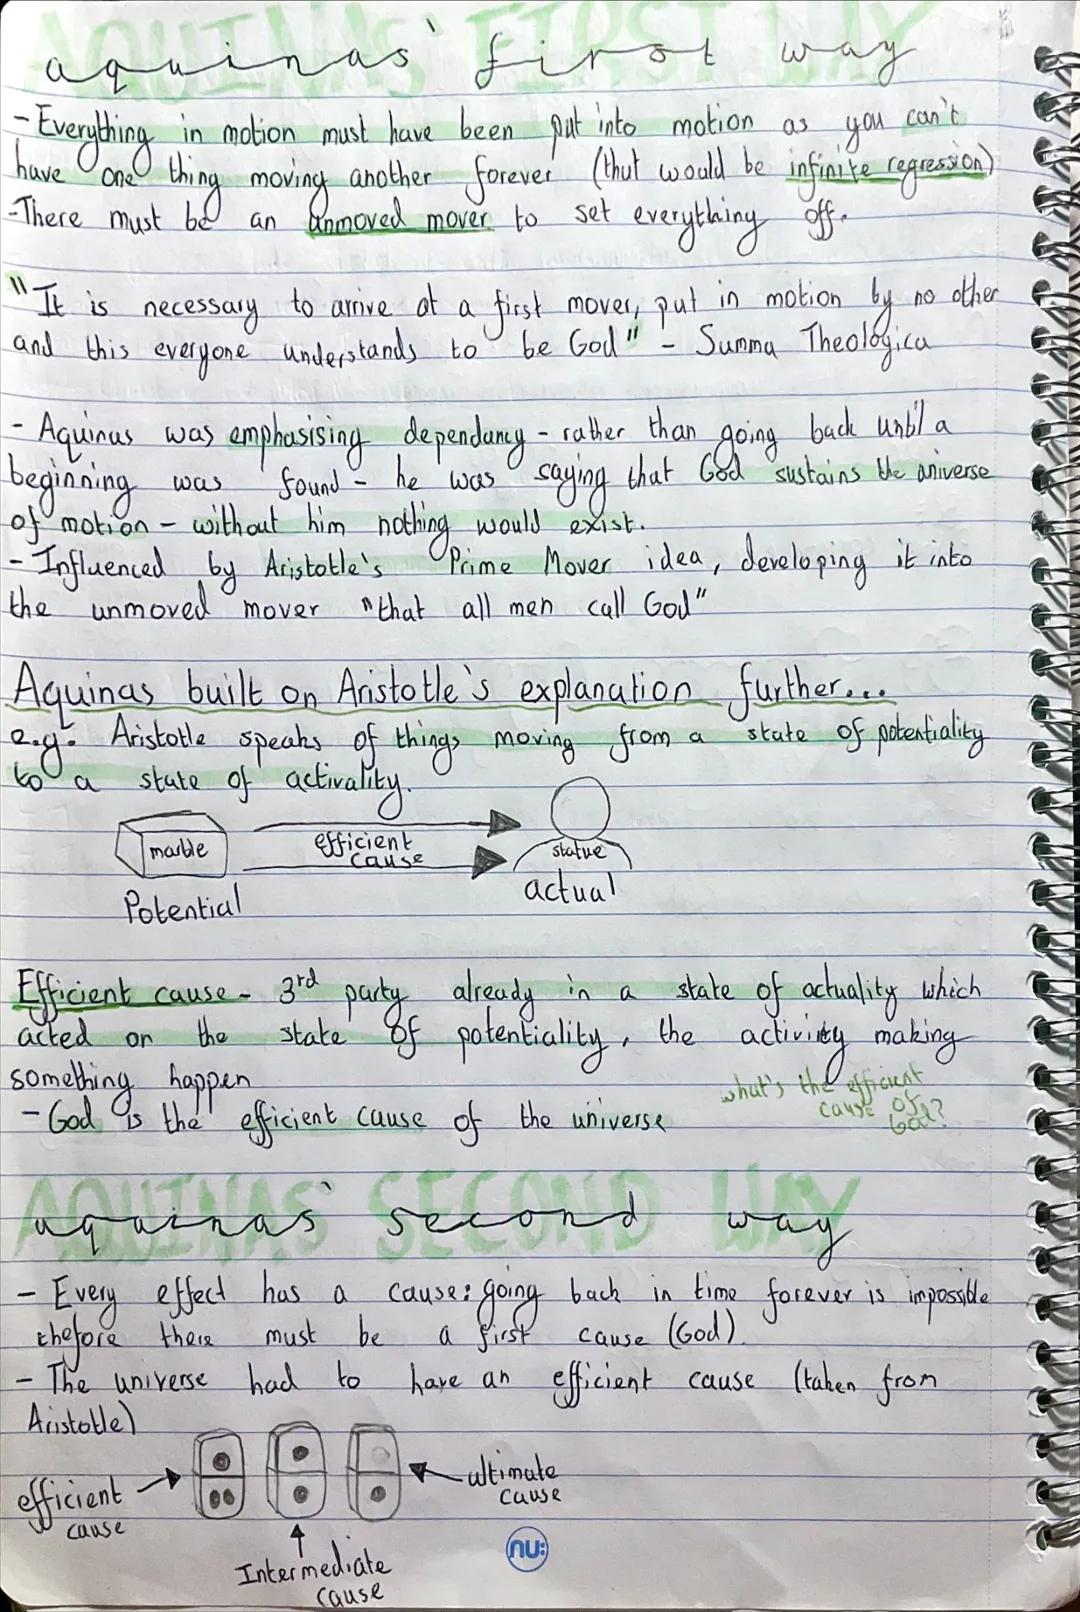 AQUINAS' FIRST WAY
aquinas' first way
- Everything in motion must have been put into motion as you can't
have one thing moving another forever (that would be infinite regression)
- There must be an unmoved mover to set everything off.
"It is necessary to arrive at a first mover, put in motion by no other
and this everyone understands to be God" - Summa Theologica
- Aquinas was emphasising dependancy - rather than going back until a
beginning was found - he was saying that God sustains the universe
of motion - without him nothing would exist.
- Influenced by Aristotle's Prime Mover idea, developing it into
the unmoved mover "that all men call God"
Aquinas built on Aristotle's explanation further...
e.g. Aristotle speaks of things moving from a state of potentiality
to a state of activality.
marble
efficient
cause
statue
Potential
actual
Efficient cause - 3rd party already in a state of actuality which
acted on the state of potentiality, the activity making
something happen
- God is the efficient cause of the universe
what's the efficient
cause of
God?
AQUINAS' SECOND WAY
aquinas' second way
- Every effect has a cause: going back in time forever is impossible
thefore there must be a first cause (God).
- The universe had to have an efficient cause (taken from
Aristotle)
efficient
cause
ultimate
cause
Intermediate
cause
nu: